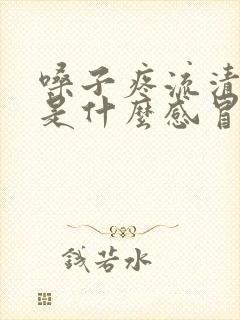 嗓子疼流清
是什麼感冒
錢若水